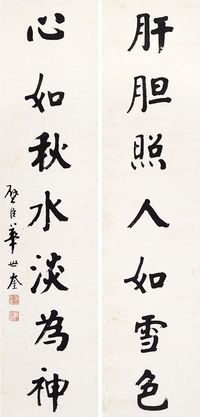 肝胆照人如雪色
心如秋水淡為神
華世奎